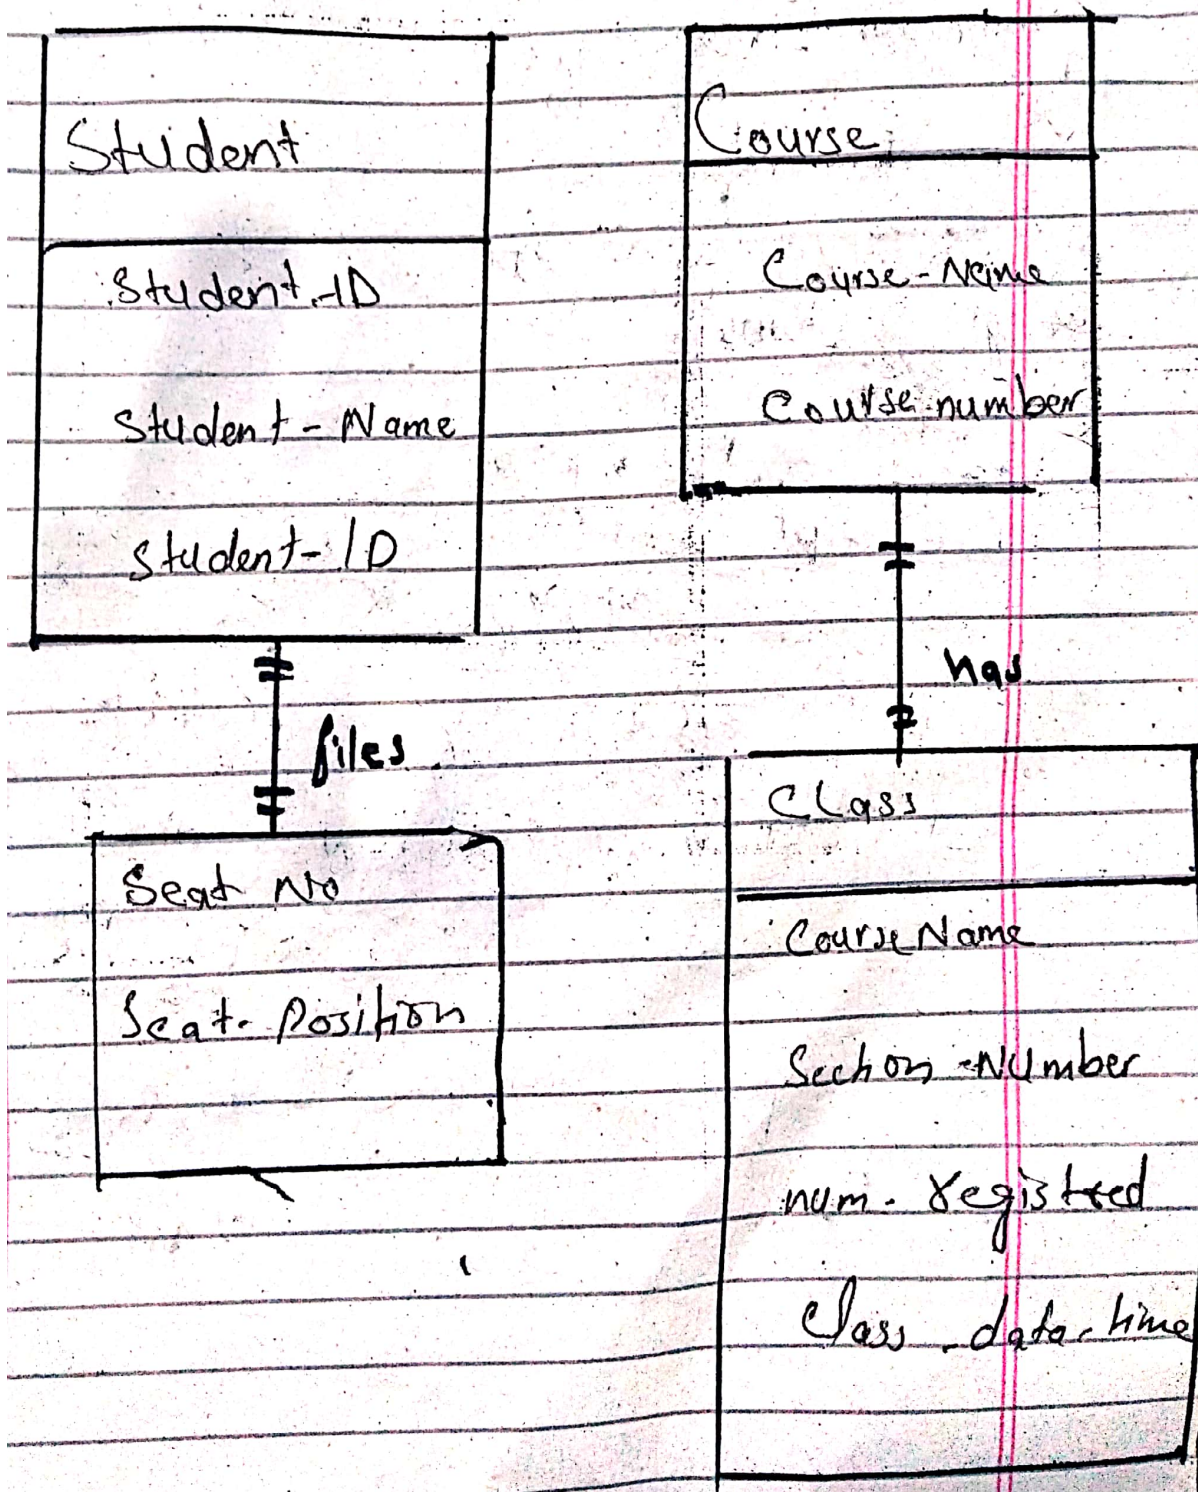 Student
Student-ID
Student-Name
Student-ID
files
Seat No
Seat-Position
Course
Course-Name
Course-number
has
Class
Course Name
Section-Number
num-registred
Class-data-time